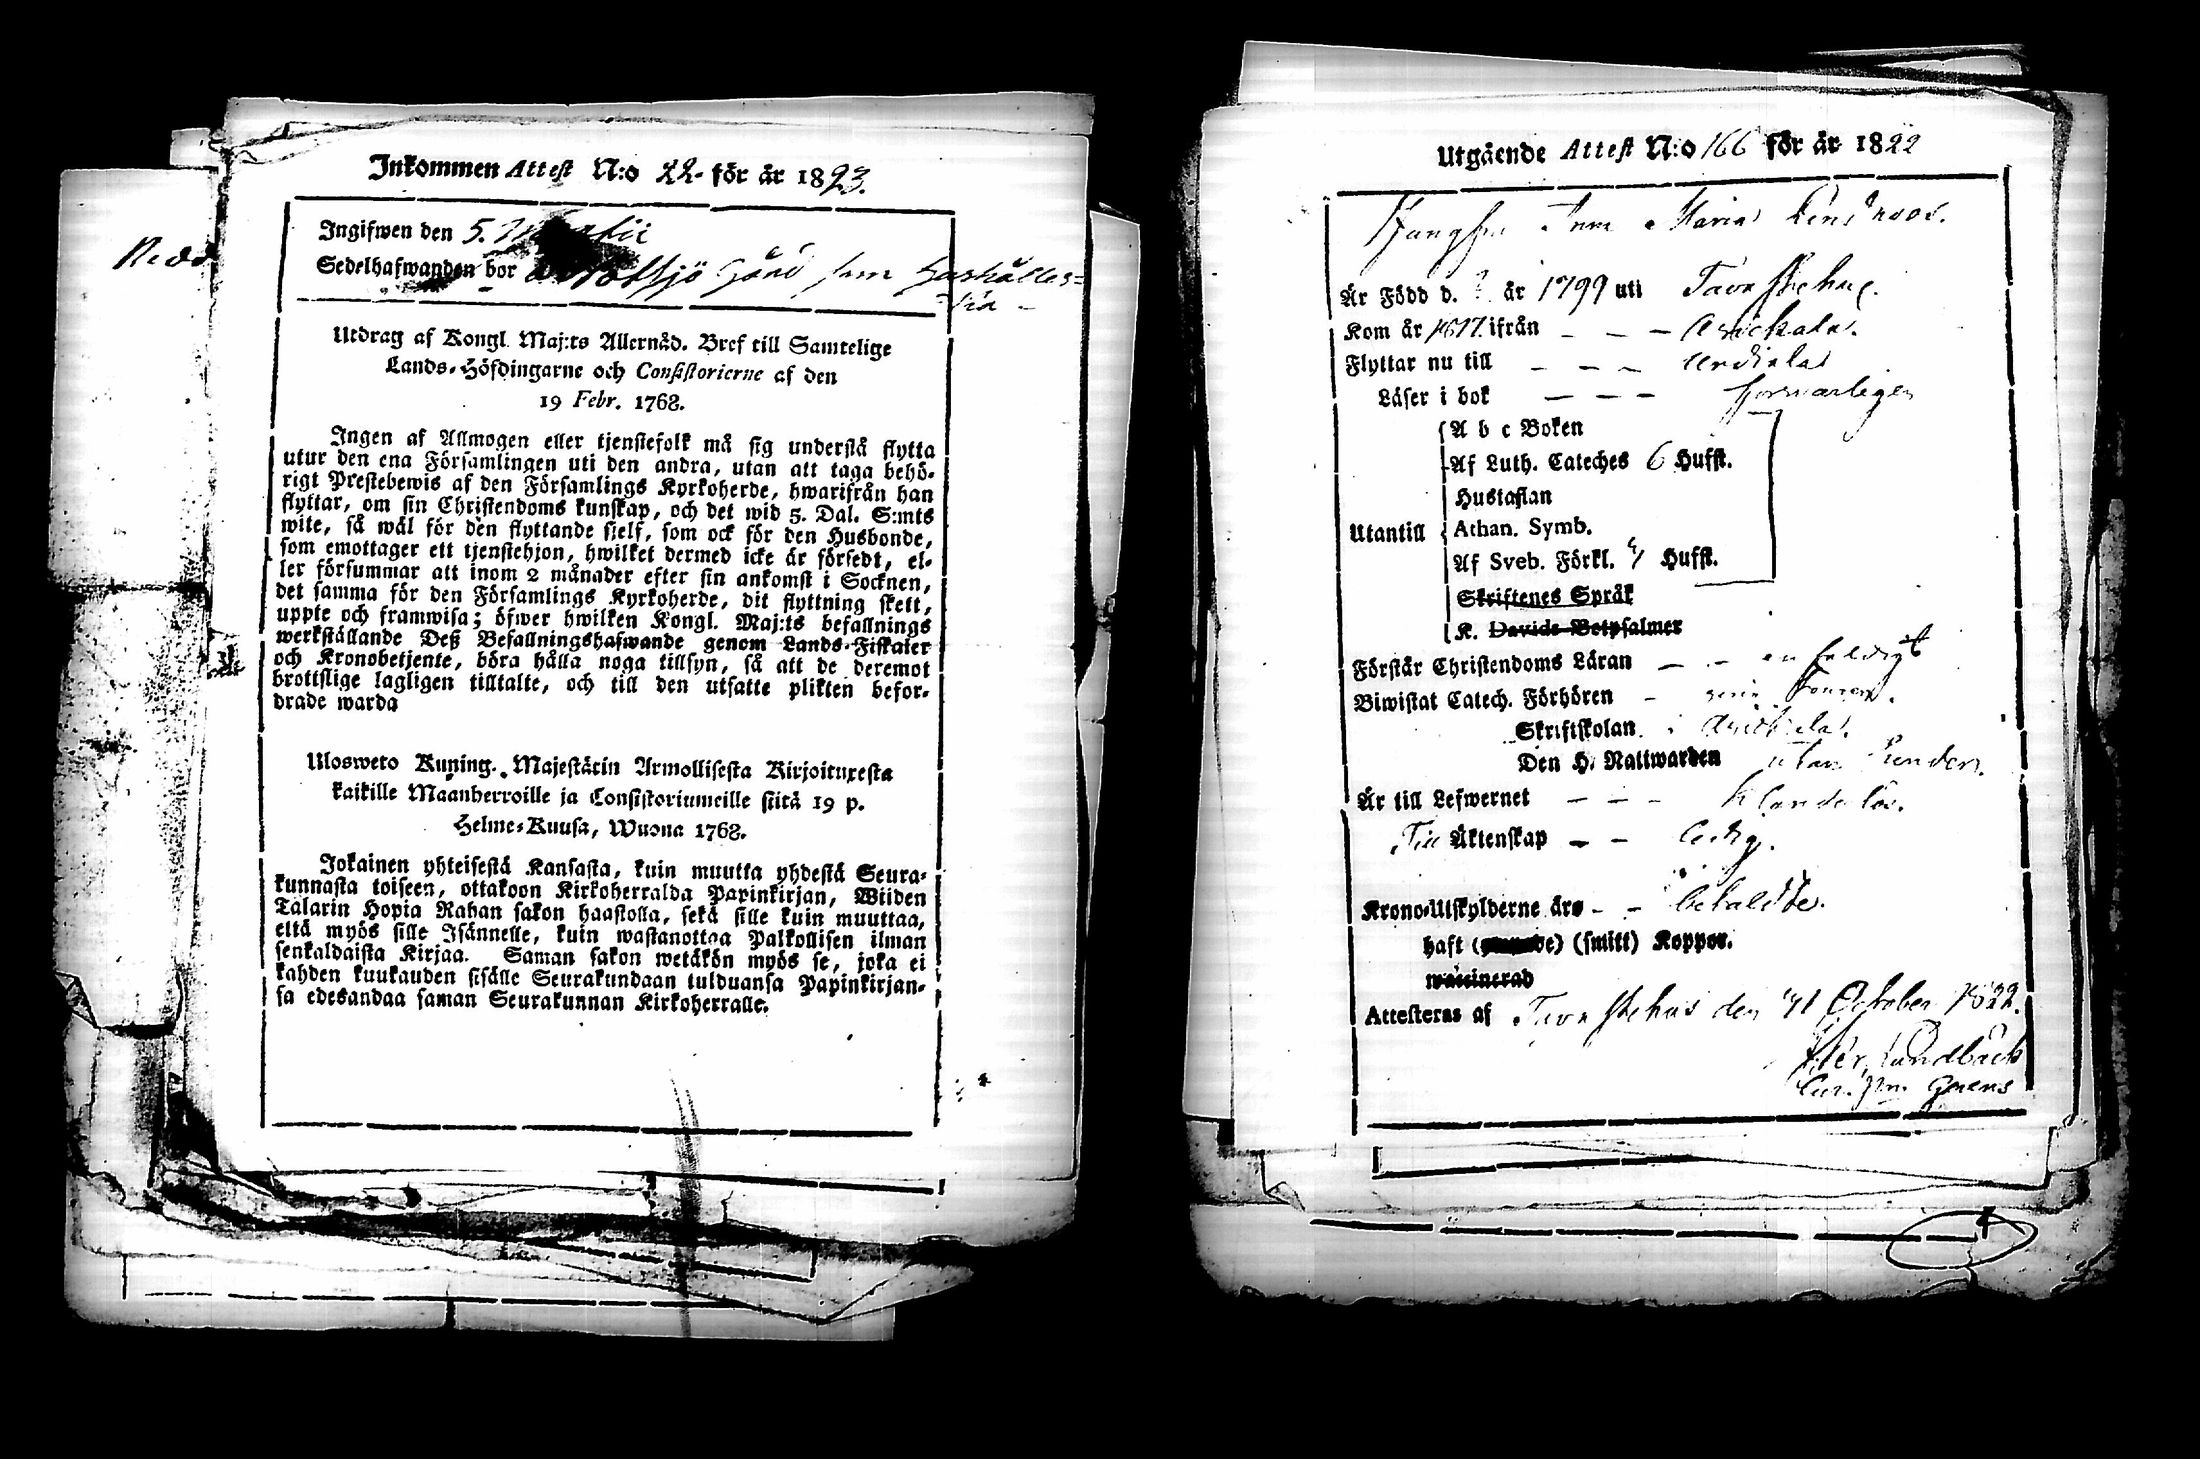 Inkommen Attest N:o 22. för år 1823.
Ingifwen den 5.
Sedelhafwanden bor Gård som Hushålles-
Utdrag af Kongl. Maj:ts Allernåd. Bref till Samtelige
Lands-Höfdingarne och Consistorierne af den
19 Febr. 1768.
Ingen af Allmogen eller tjenstefolk må sig understå flytta
utur den ena Församlingen uti den andra, utan att taga behö-
rigt Prestebewis af den Församlings Kyrkoherde, hwarifrån han
flyttar, om sin Christendoms kunskap, och det wid 5. Dal. S:mts
wite, så wäl för den flyttande sjelf, som ock för den Husbonde,
som emottager ett tjenstehjon, hwilket dermed icke är försedt, el-
ler försummar att inom 2 månader efter sin ankomst i Socknen,
det samma för den Församlings Kyrkoherde, dit flyttning skett,
uppte och framwisa; öfwer hwilken Kongl. Maj:ts befallnings
werkställande Deß Befallningshafwande genom Lands-Fiskaler
och Kronobetjente, böra hålla noga tillsyn, så att de deremot
brottslige lagligen tilltalte, och till den utsatte plikten befor-
drade warda
Ulosweto Kuning. Majestätin Armollisesta Kirjoituxesta
kaikille Maanherroille ja Consistoriumeille siitä 19 p.
Helme-Kuusa, Wuona 1768.
Jokainen yhteisestä Kansasta, kuin muutta yhdestä Seura-
kunnasta toiseen, ottakoon Kirkoherralda Papinkirjan, Wiiden
Talarin Hopia Rahan sakon haastolla, sekä sille kuin muuttaa,
että myös sille Isännelle, kuin wastanottaa Palkollisen ilman
senkaldaista Kirjaa. Saman sakon wetäkön myös se, joka ei
kahden kuukauden sisälle Seurakundaan tulduansa Papinkirjan-
sa edesandaa saman Seurakunnan Kirkoherralle.
Utgående Attest N:o 166 för år 1822
Jungfru Anna Maria
Är Född d. ? år 1799 uti Tavastehus.
Kom år 1817 ifrån — — —
Flyttar nu till — — — Urdiala
Läser i bok — — — försvarligen
A b c Boken
Af Luth. Cateches 6 Hufst.
Hustaflan
Utantill Athan. Symb.
Af Sveb. Förkl. Hufst.
Skriftenes Språk
K. Davids Botpsalmer
Förstår Christendoms Läran — — enfaldigt
Biwistat Catech. Förhören —
Skriftskolan
Den H. Nattwarden utan
Är till Lefwernet — — — Klanderlös.
Till Äktenskap — — ledig.
Krono-Utskylderne äro — — betaldte.
haft (smitt) Koppor.
waccinerad
Attesteras af Tavastehus den October 1822.
Lundbäck